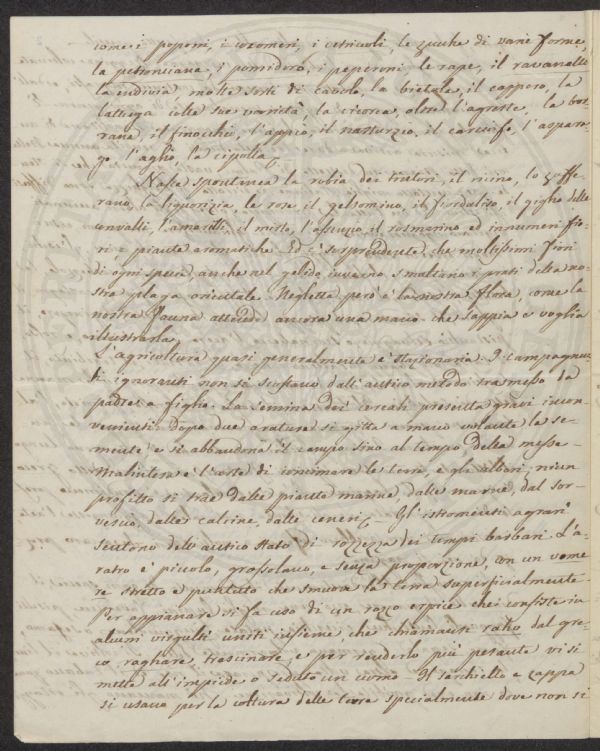 come i poponi, i cocomeri, i citriuoli, le zucche di varie forme,
la petronciana, i pomidoro, i peperoni, le rape, il ravanello
la indivia molte sorti di cavolo, la bietola, il cappero, la
lattuga colle sue varietà, la cicorea, oltre l'agreste, la bor-
rana, il finocchio, l'appio, il nasturzio, il carciofo, l'aspara-
go l'aglio, la cipolla,
Nasce spontanea la robia dei tintori, il ricino, lo zaffe-
rano, la liquorizia, le rose il gelsomino, il fioraliso, il giglio delle
convalli, l'amarilli, il mirto, l'assenzio, il rosmarino, ed innumeri fio-
ri, e piante aromatiche. Ed è sorprendente, che moltissimi fiori
di ogni specie, anche nel gelido inverno smaltano i prati della no-
stra plaga orientale. Negletta però è la nostra flora, come la
nostra Fauna attende ancora una mano che sappia e voglia
illustrarla.
L'agricoltura quasi generalmente è stazionaria. I campagnuo-
li ignoranti non si scostano dall'antico metodo trasmesso da
padre a figlio. La semina dei cereali presenta gravi incon-
venienti: dopo due arature si gitta a mano volante la se-
mente e si abbandona il campo sino al tempo della messe.
Malintesa è l'arte di concimare le terre, e gli alberi, niun
profitto si trae dalle piante marine, dalle marne, dal sor-
vescio, dalle calcine, dalle ceneri. Gl'istromenti agrari
sentono dell'antico stato di rozzezza dei tempi barbari. L'a-
ratro è picolo, grossolano, e senza proporzione, con un vome-
re stretto e puntuto che smuove la terra superficialmente.
Per appianare si fa uso di un rozzo erpice che consiste in
alcuni virgulti uniti insieme, che chiamansi dal gre-
co, raghare, trascinare, e per renderlo più pesante vi si
mette all'impiede o seduto un uomo. Il sarchiello e zappa
si usano per la coltura delle terre specialmente dove non si